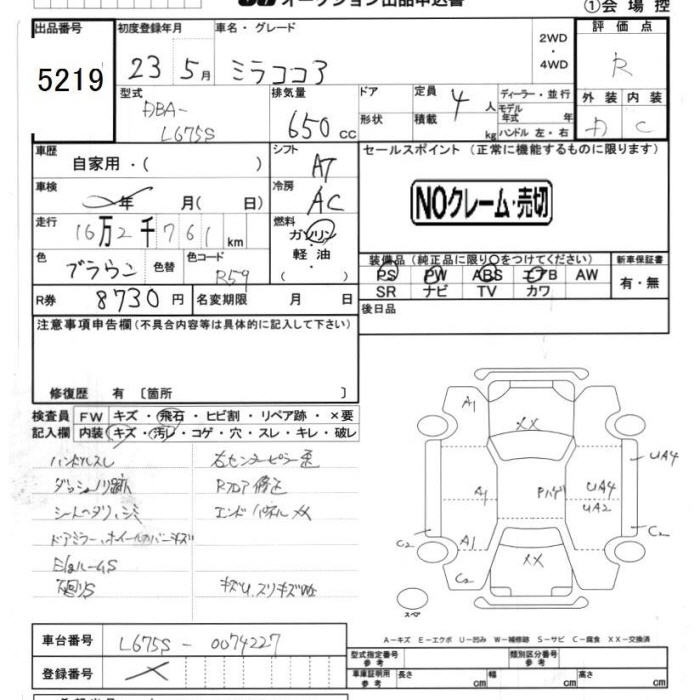 オークション出品申込書 ①会場控
出品番号 初度登録年月 車名・グレード 評価点
5219 23 5月 ミラココア 2WD・4WD R
型式 排気量 ドア 定員 ディーラー・並行 外装 内装
DBA-L675S 650cc 形状 4人 積載 kg モデル年式 年 ハンドル 左・右 D C
車歴 シフト セールスポイント (正常に機能するものに限ります)
自家用・( ) AT
車検 冷房 NOクレーム・売切
年 月( 日) AC
走行 燃料
16万2千761km ガソリン・軽油・( )
色 色替 色コード 装備品(純正品に限り○をつけてください) 新車保証書
ブラウン R59 PS PW ABS エアB AW 有・無
R券 8730円 名変期限 月 日 SR ナビ TV カワ
注意事項申告欄(不具合内容等は具体的に記入して下さい) 後日品
修復歴 有 〔箇所 〕
検査員記入欄 FW キズ・飛石・ヒビ割・リペア跡・×要
内装 キズ・汚レ・コゲ・穴・スレ・キレ・破レ
ハンドルスレ
ダッシュノリ跡 Rフロア修正
シートヘタリ、シミ エンドパネルXX
ドアミラー、ホイールカバーキズ
下廻りS
A1 XX
UA4
A1 Pハゲ UA4
UA2
C2 A1 C2
C2 XX
スペア
A-キズ E-エクボ U-凹み W-補修跡 S-サビ C-腐食 XX-交換済
車台番号 L675S-0074227 型式指定番号 参考 類別区分番号 参考
登録番号 車庫証明用 参考 長さ cm 幅 cm 高さ cm